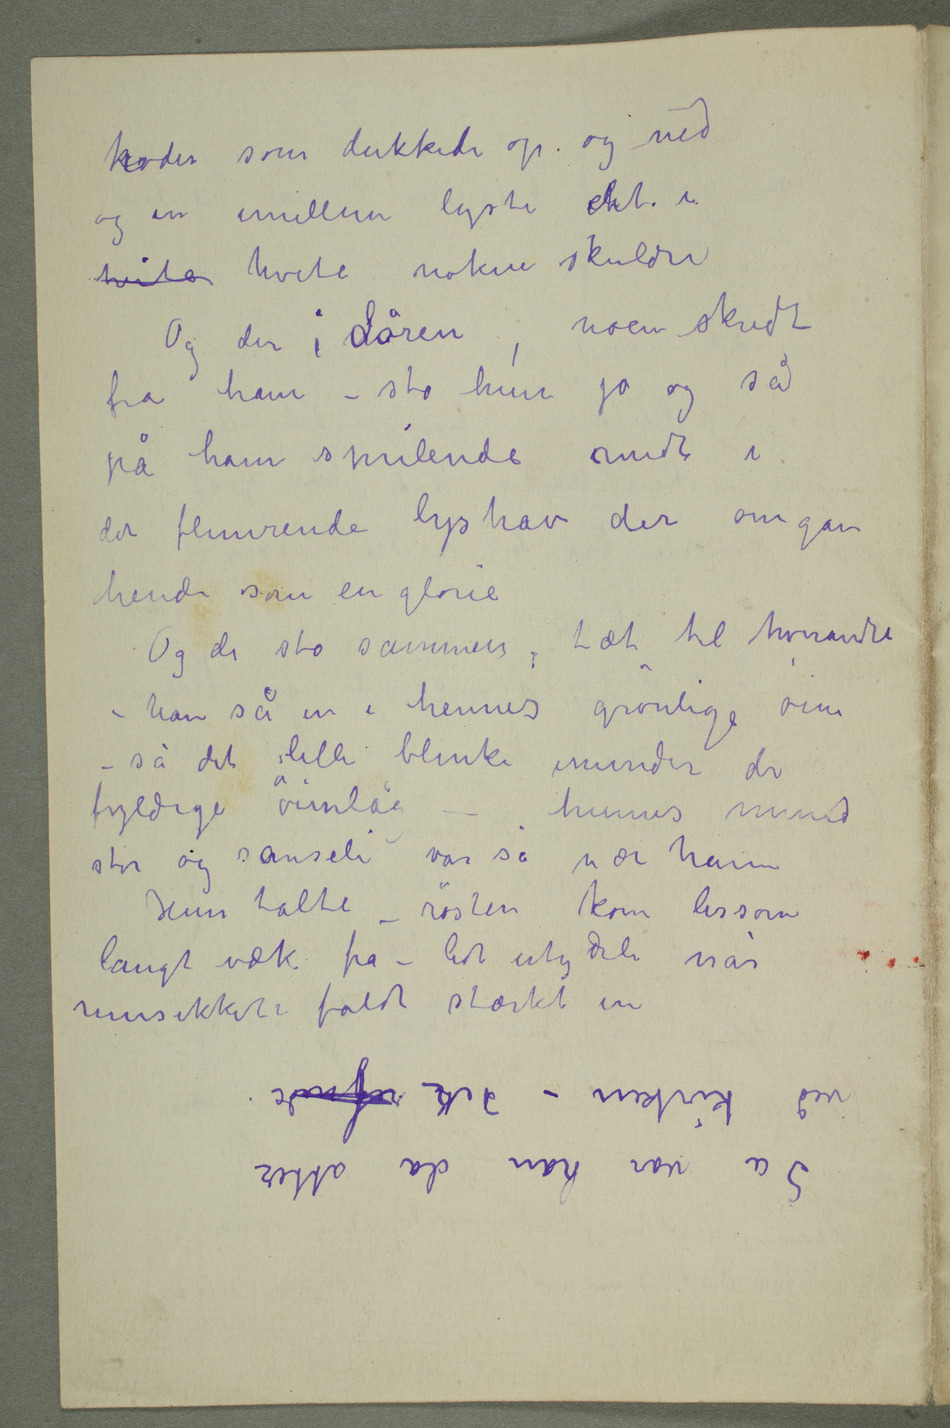 hoder som dukkede op. og ned
og en imellem lyste det i
hvite hvite nokne skuldre
Og der i dören, noen skridt
fra ham – sto hun jo og så
på ham smilende midt i
det flimrende lyshav der omgav
hende som en glorie
Og de sto sammen, tæt til hverandre
– han så in i hennes grönlige öine
– så det lille blinke inunder de
fyldige öienlåg – hennes mund
stor og sanseli var så nær ham
Hun talte – rösten kom lissom
langt væk fra – lidt utydeli når
musikken faldt stærkt in
Så var han da atter
ved kirken – Det regnede